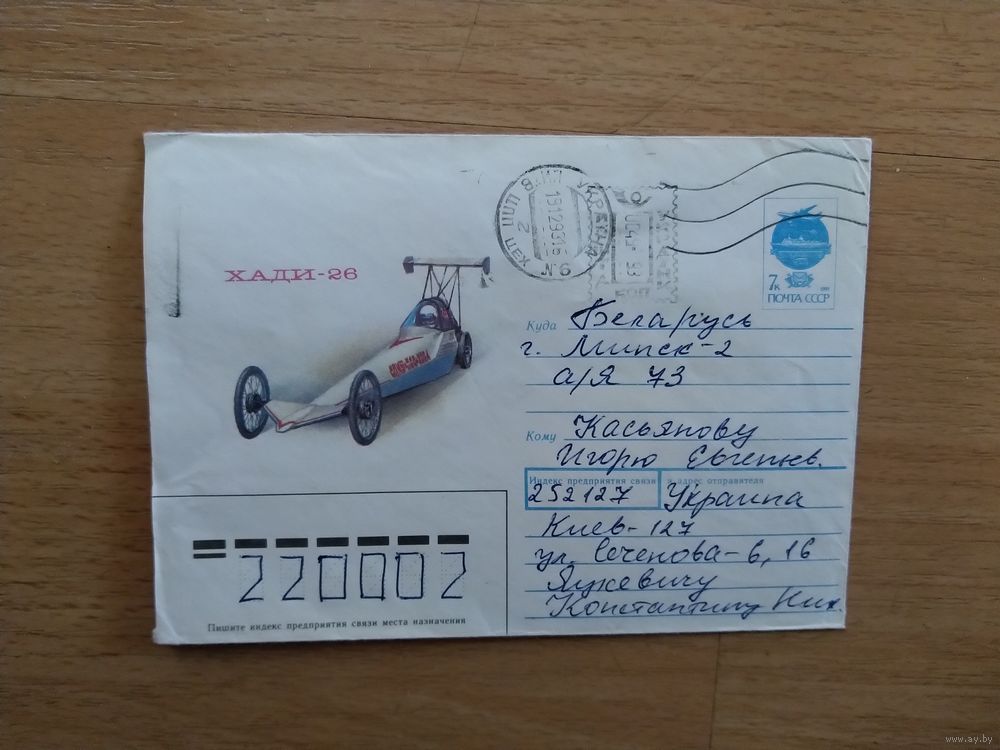 ХАДИ-26
УКРАЇНА
ЦЕХ
2
№6
7к
1991
ПОЧТА СССР
Куда Беларусь
г. Минск-2
а/я 73
Кому Касьянову
Игорю Евгеньев.
Индекс предприятия связи и адрес отправителя
252127 Украина
Киев-127
ул. Сеченова-6, 16
Яцкевичу
Константину Ник.
220002
Пишите индекс предприятия связи места назначения
www.ay.by